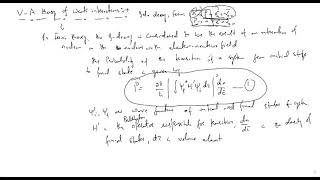 V-A theory of weak interaction:- In β decay, from
In Fermi theory, the β-decay is considered to be the result of an interaction of
nucleon in the nucleus with electron-neutrino field
The Probability of the transition of a system from initial state
to final state is given by
P = 2π/ħ | ∫ ψf* H' ψi dτ |² dn/dE — (1)
ψi, ψf are wave function of initial and final states of system.
H' = the operator responsible for transition, dn/dE = the density of
final states, dτ = volume element